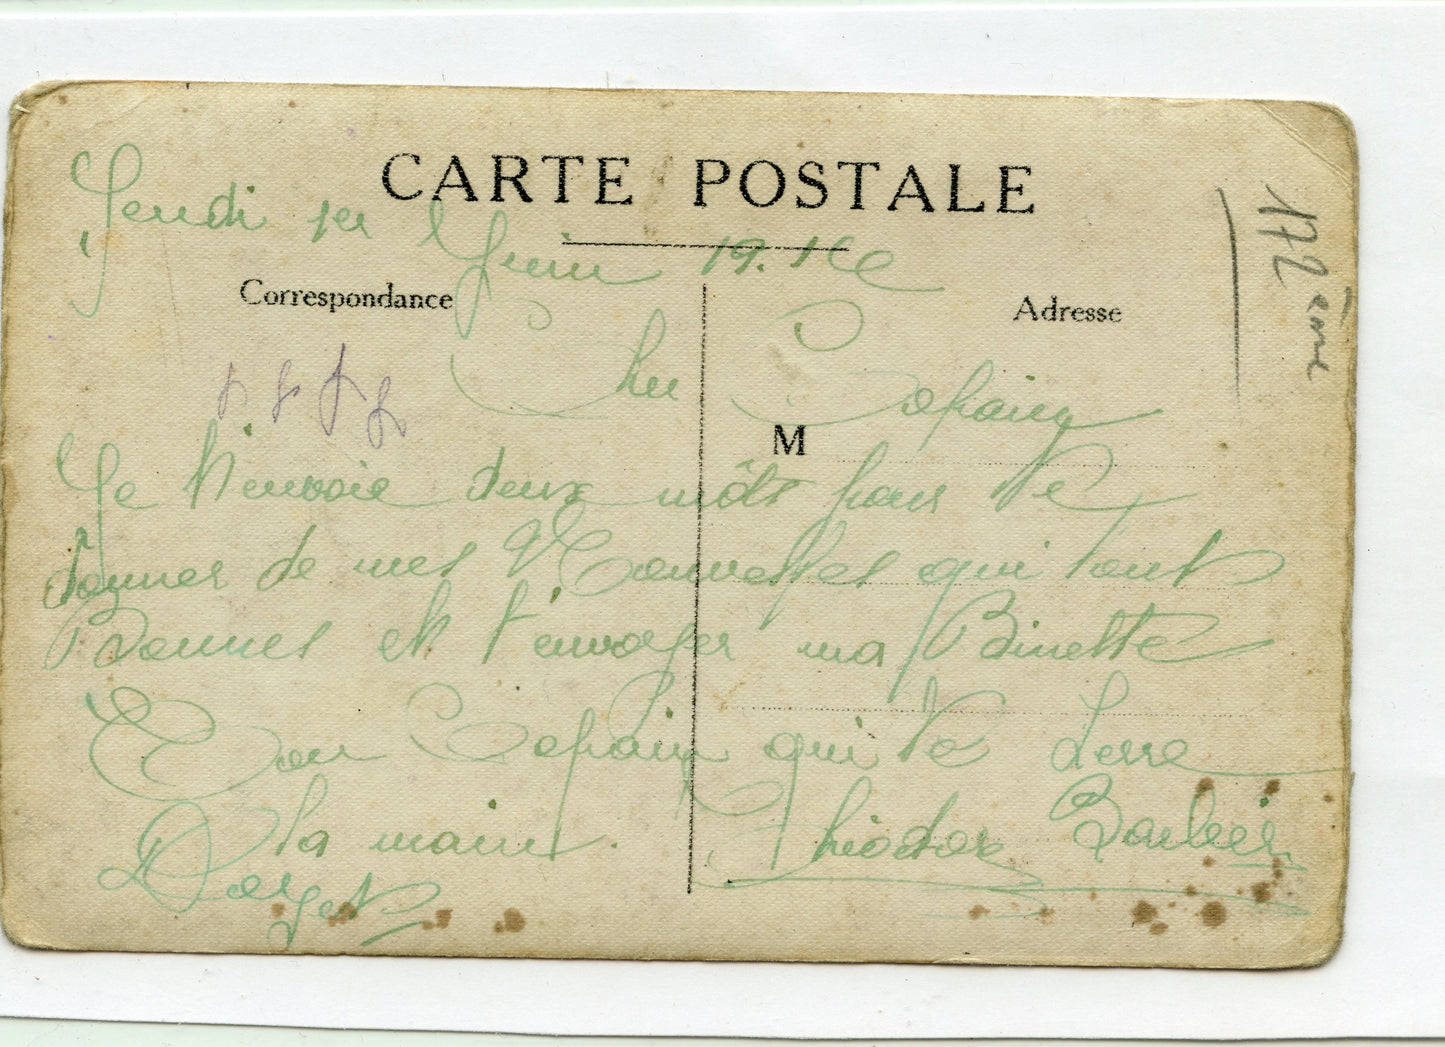 CARTE POSTALE
Jeudi 1er Juin 1916
Correspondance
Adresse
172ème
Cher Copain
M
Je t'envoie deux môts pour te
donner de mes Nouvelles qui sont
Bonnes et t'envoyer ma Binette
Ton Copain qui te serre
la main. Théodor Barbier